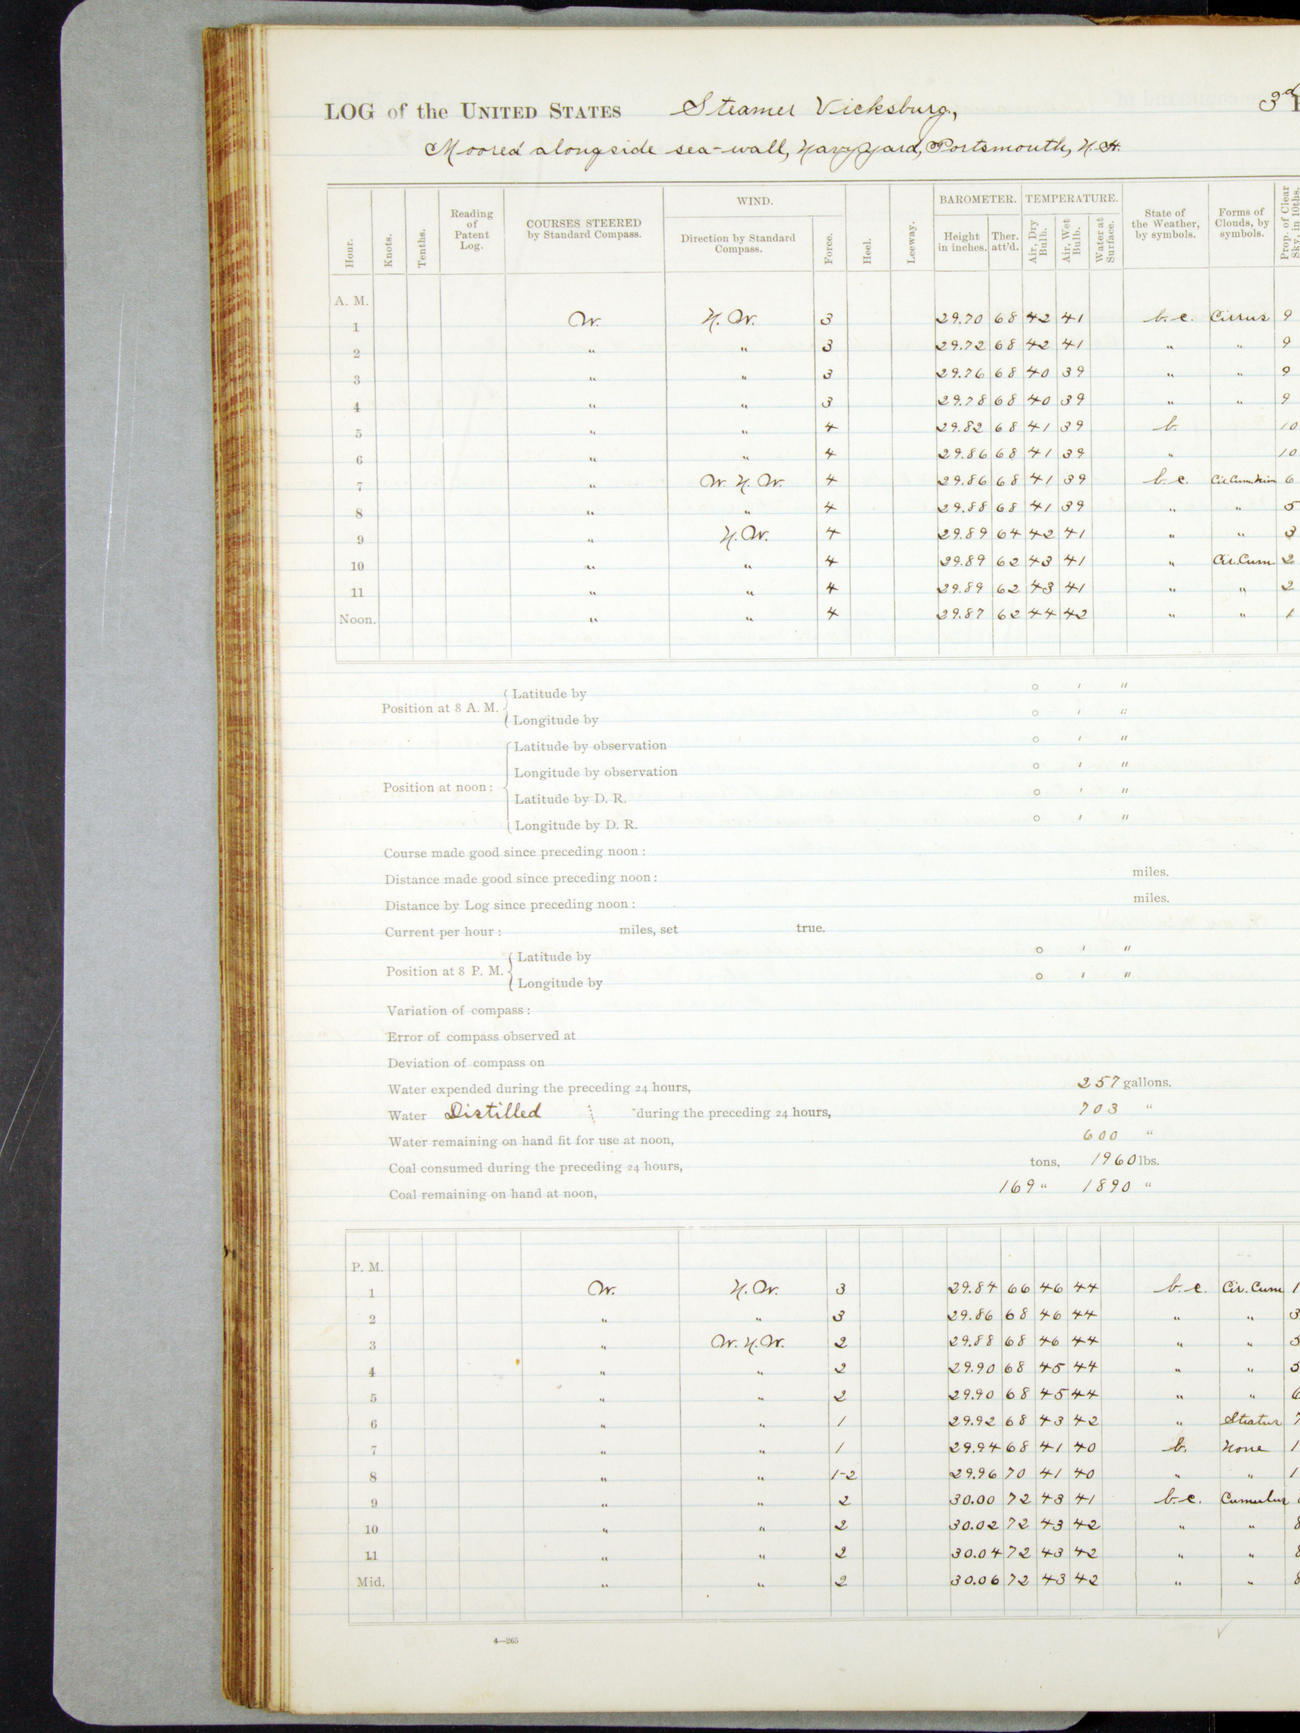 LOG of the UNITED STATES Steamer Vicksburg, 3d
Moored alongside sea-wall, Navy Yard, Portsmouth, N.H.
Hour. Knots. Tenths. Reading of Patent Log. COURSES STEERED by Standard Compass. WIND. Direction by Standard Compass. Force. Heel. Leeway. BAROMETER. Height in inches. Ther. att'd. TEMPERATURE. Air, Dry Bulb. Air, Wet Bulb. Water at Surface. State of the Weather, by symbols. Forms of Clouds, by symbols. Prop. of Clear Sky, in 10ths.
A. M.
1 W. N.W. 3 29.70 68 42 41 b.c. Cirrus 9
2 " " 3 29.72 68 42 41 " " 9
3 " " 3 29.76 68 40 39 " " 9
4 " " 3 29.78 68 40 39 " " 9
5 " " 4 29.82 68 41 39 b. 10
6 " " 4 29.86 68 41 39 " 10
7 " W.N.W. 4 29.86 68 41 39 b.c. Cir.Cum.Nim 6
8 " " 4 29.88 68 41 39 " " 5
9 " N.W. 4 29.89 64 42 41 " " 3
10 " " 4 29.89 62 43 41 " Cir.Cum 2
11 " " 4 29.89 62 43 41 " " 2
Noon. " " 4 29.87 62 44 42 " " 1
Position at 8 A. M. Latitude by ° ′ ″
Longitude by ° ′ ″
Position at noon: Latitude by observation ° ′ ″
Longitude by observation ° ′ ″
Latitude by D. R. ° ′ ″
Longitude by D. R. ° ′ ″
Course made good since preceding noon:
Distance made good since preceding noon: miles.
Distance by Log since preceding noon: miles.
Current per hour: miles, set true.
Position at 8 P. M. Latitude by ° ′ ″
Longitude by ° ′ ″
Variation of compass:
Error of compass observed at
Deviation of compass on
Water expended during the preceding 24 hours, 257 gallons.
Water Distilled during the preceding 24 hours, 703 "
Water remaining on hand fit for use at noon, 600 "
Coal consumed during the preceding 24 hours, tons, 1960 lbs.
Coal remaining on hand at noon, 169 " 1890 "
P. M.
1 W. N.W. 3 29.84 66 46 44 b.c. Cir.Cum 1
2 " " 3 29.86 68 46 44 " " 3
3 " W.N.W. 2 29.88 68 46 44 " "
4 " " 2 29.90 68 45 44 " "
5 " " 2 29.90 68 45 44 " " 6
6 " " 1 29.92 68 43 42 " Stratus 7
7 " " 1 29.94 68 41 40 b. None 1
8 " " 1-2 29.96 70 41 40 " " 1
9 " " 2 30.00 72 43 41 b.c. Cumulus
10 " " 2 30.02 72 43 42 " " 8
11 " " 2 30.04 72 43 42 " " 8
Mid. " " 2 30.06 72 43 42 " " 8
4—265